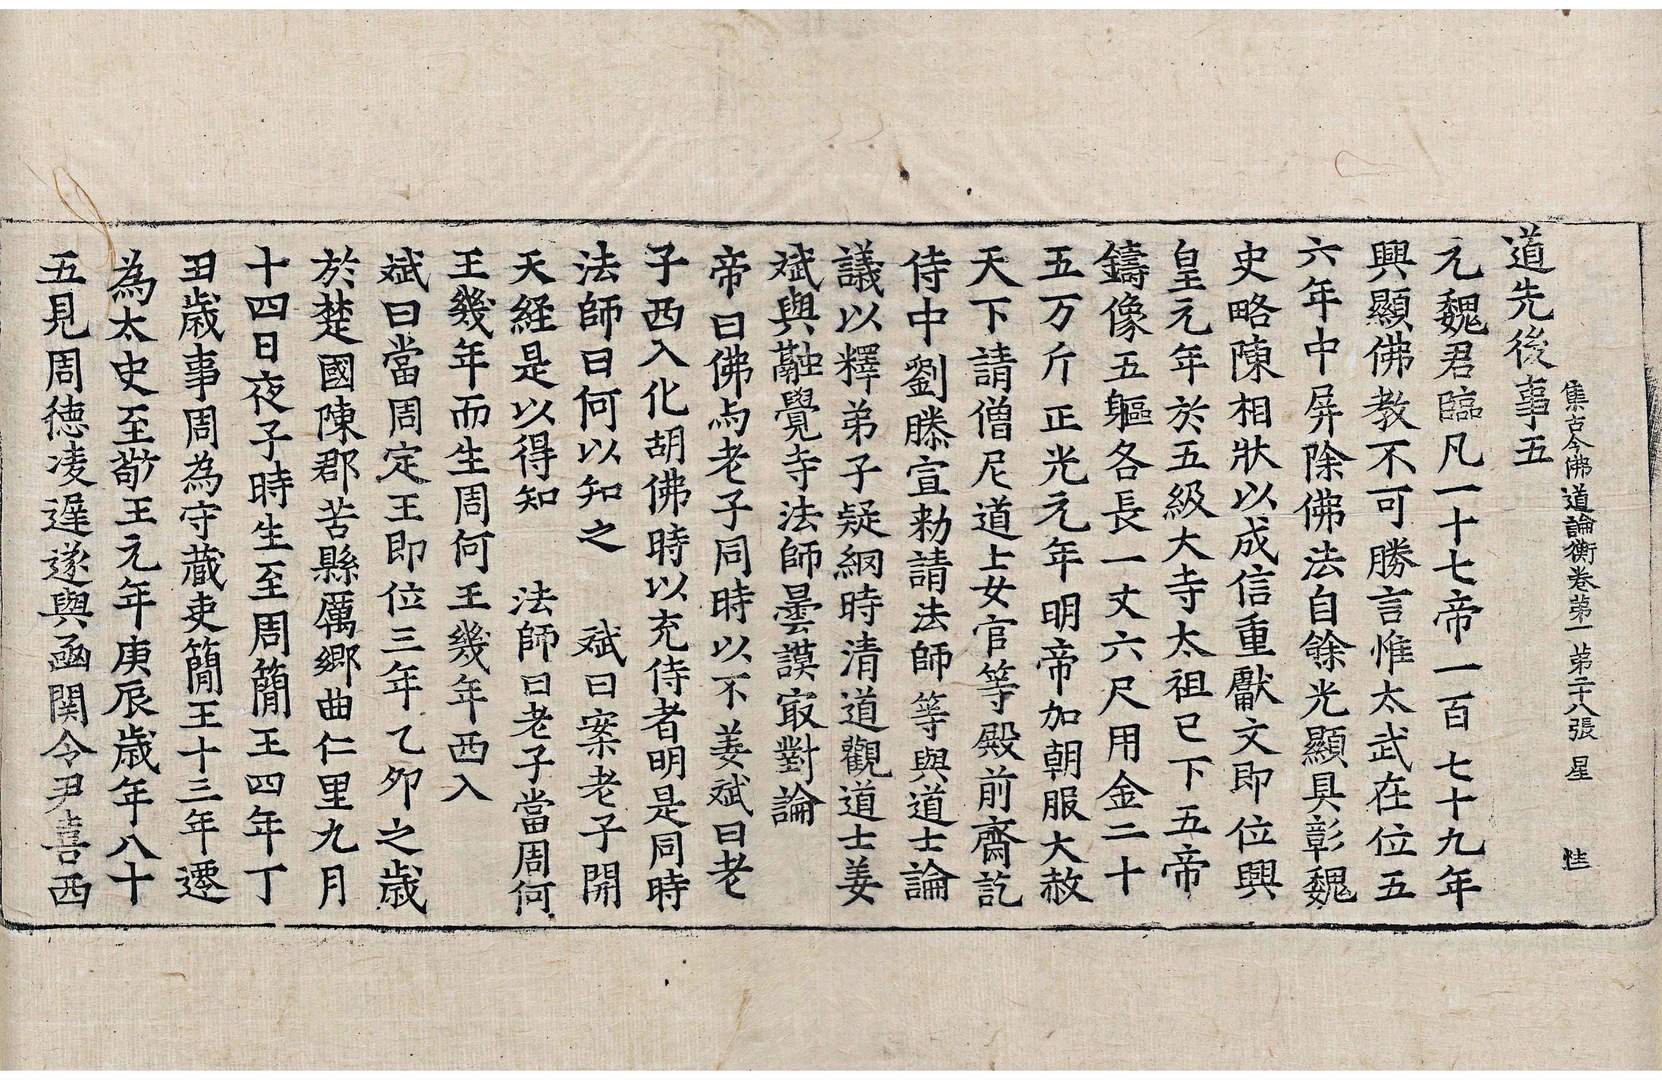 道先後事五
集古今佛道論衡卷第一 第二十八張 星
元魏君臨凡一十七帝一百七十九年
興顯佛教不可勝言惟太武在位五
六年中屏除佛法自餘光顯具彰魏
史略陳相狀以成信重獻文即位興
皇元年於五級大寺太祖已下五帝
鑄像五軀各長一丈六尺用金二十
五万斤正光元年明帝加朝服大赦
天下請僧尼道士女官等殿前齋訖
侍中劉滕宣勑請法師等與道士論
議以釋弟子疑網時清道觀道士姜
斌與融覺寺法師曇謨㝡對論
帝曰佛与老子同時以不姜斌曰老
子西入化胡佛時以充侍者明是同時
法師曰何以知之 斌曰案老子開
天経是以得知 法師曰老子當周何
王幾年而生周何王幾年西入
斌曰當周定王即位三年乙夘之歲
於楚國陳郡苦縣厲鄉曲仁里九月
十四日夜子時生至周簡王四年丁
丑歲事周為守藏吏簡王十三年遷
為太史至敬王元年庚辰歲年八十
五見周德凌遲遂與函関令尹喜西